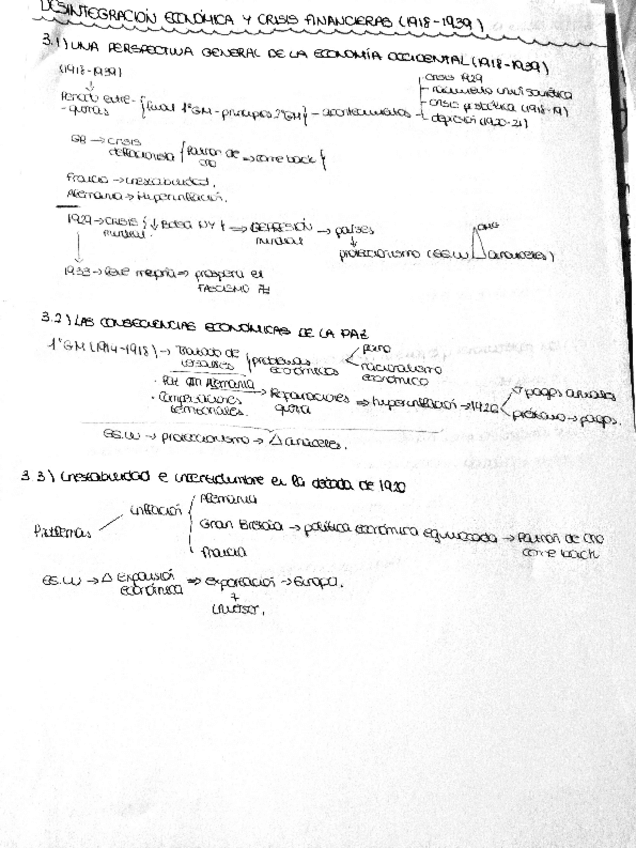 DESINTEGRACIÓN ECONÓMICA Y CRISIS FINANCIERAS (1918-1939)
3.1) UNA PERSPECTIVA GENERAL DE LA ECONOMÍA OCCIDENTAL (1918-1939)
(1918-1939)
Periodo entre-guerras {final 1ªGM - principios 2ªGM} - acontecimientos
crisis 1929
nacimiento unión soviética
crisis (1918-19)
depresión (1920-21)
GB → crisis deflacionista {Patrón de oro → come back {
Francia → inestabilidad.
Alemania → Hiperinflación.
1929 → CRISIS mundial. {↓ Bolsa NY} ⇒ DEPRESIÓN mundial → países
↓
proteccionismo (EE.UU aranceles)
1933 → leve mejoría ⇒ prospera el FASCISMO
3.2) LAS CONSECUENCIAS ECONÓMICAS DE LA PAZ
1ªGM (1914-1918) → Tratado de Versalles {problemas económicos
paro
nacionalismo económico
· Paz con Alemania
· Amputaciones territoriales.
→ Reparaciones guerra ⇒ hiperinflación → 1920
↑ pagos anuales
préstamo → pagos.
EE.UU → proteccionismo → △ aranceles.
3.3) Inestabilidad e incertidumbre en la década de 1920
Problemas
inflación
Alemania
Gran Bretaña → política económica equivocada → Patrón de oro come back
Francia
EE.UU → △ Expansión económica ⇒ exportación → Europa.
+
inversor.